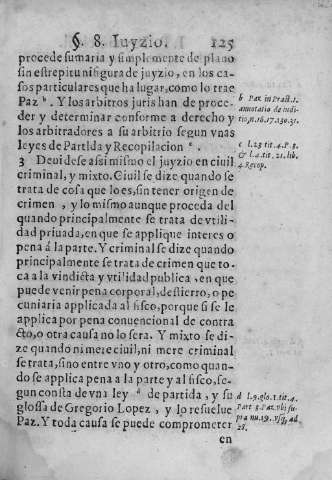 §. 8. Iuyzio. 125
procede sumaria y simplemente de plano
sin estrepitu ni figura de juyzio, en los ca-
sos particulares que ha lugar, como lo trae
Paz b. Y los arbitros juris han de proce-
der y determinar conforme a derecho y
los arbitradores a su arbitrio segun vnas
leyes de Partida y Recopilacion c.
3 Deuidese assi mismo el juyzio en ciuil
criminal, y mixto. Ciuil se dize quando se
trata de cosa que lo es, sin tener origen de
crimen, y lo mismo aunque proceda del
quando principalmente se trata de vtili-
dad priuada, en que se applique interes o
pena á la parte. Y criminal se dize quando
principalmente se trata de crimen que to-
ca a la vindicta y vtilidad publica, en que
puede venir pena corporal, destierro, o pe-
cuniaria applicada al fisco, porque si se le
applica por pena conuencional de contra
cto, o otra causa no lo sera. Y mixto se di-
ze quando ni mere ciuil, ni mere criminal
se trata, sino entre vno y otro, como quan-
do se applica pena a la parte y al fisco, se-
gun consta de vna ley d de partida, y su
glossa de Gregorio Lopez, y lo resuelue
Paz. Y toda causa se puede comprometer
en
b Pax in Pract. 1.
annotatio de iudi-
tio, n. 16. 17. 130. 31.
c l. 23 tit. 4. P. 3.
& l. 4. tit. 21. lib.
4. Recop.
d l. 9. glo. 1. tit. 4.
Part 3. Paz. vbi su-
pra nu. 19. vsq, ad
28.